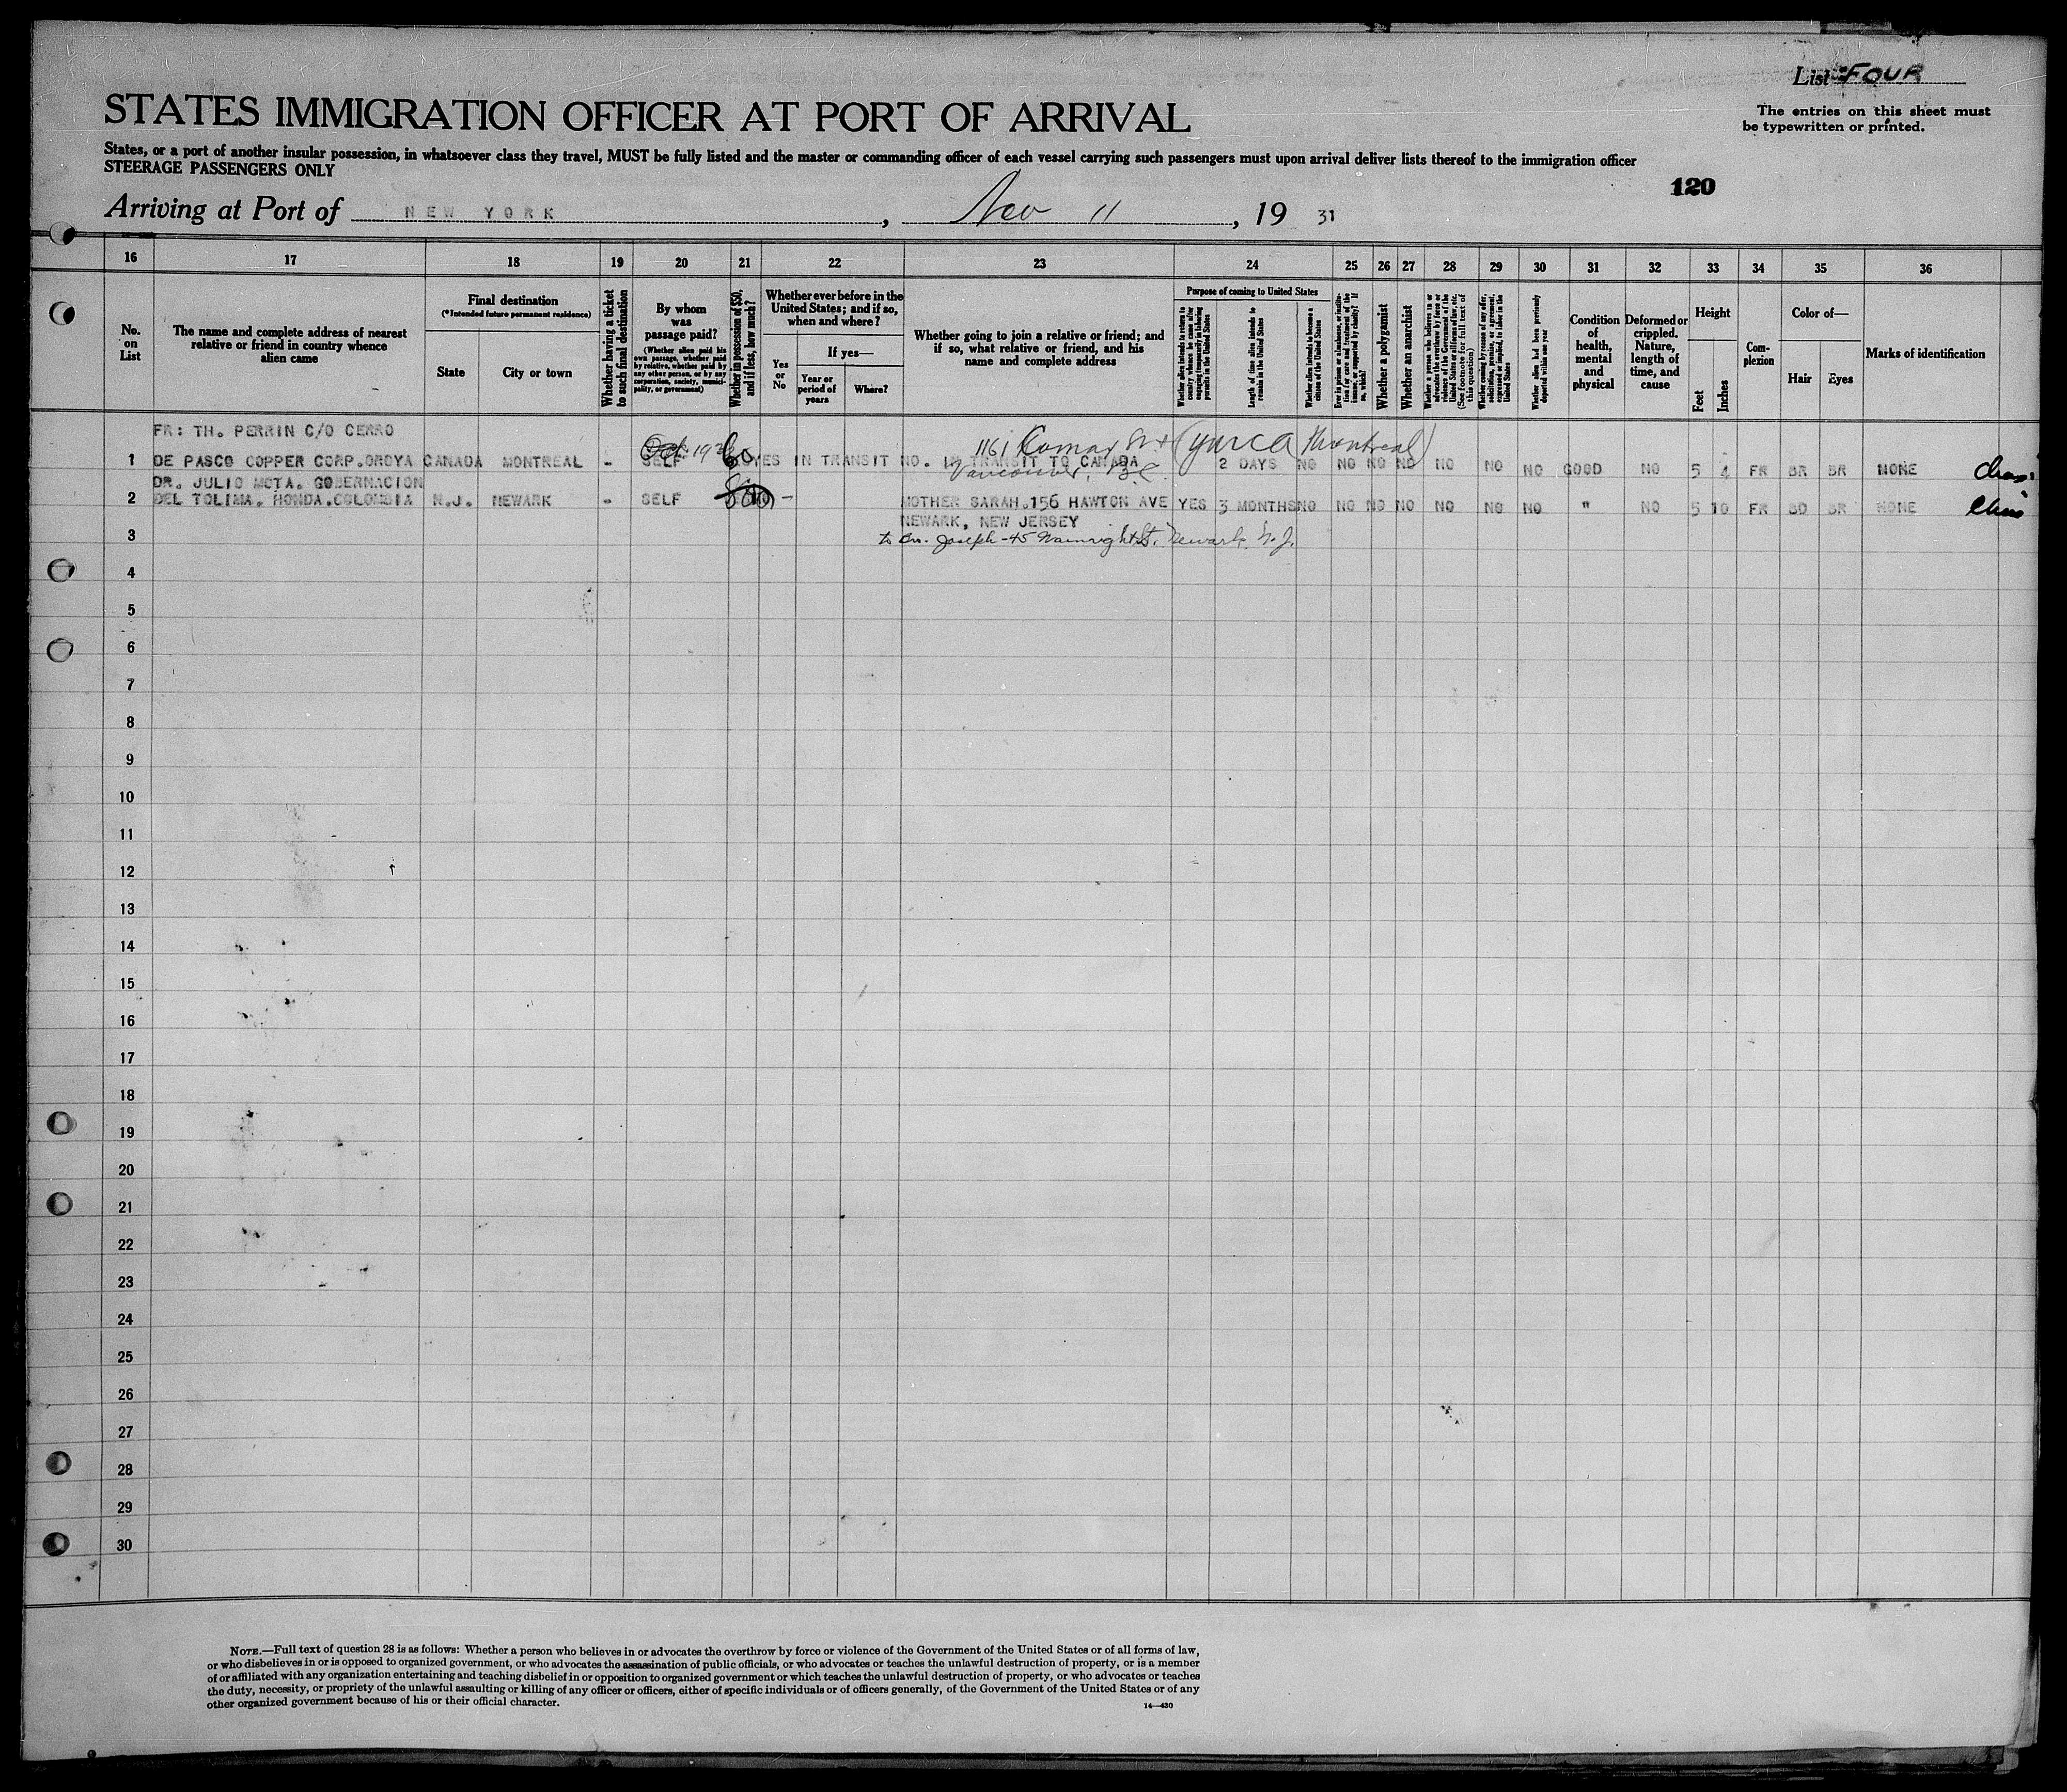 List FOUR
STATES IMMIGRATION OFFICER AT PORT OF ARRIVAL
The entries on this sheet must
be typewritten or printed.
States, or a port of another insular possession, in whatsoever class they travel, MUST be fully listed and the master or commanding officer of each vessel carrying such passengers must upon arrival deliver lists thereof to the immigration officer
STEERAGE PASSENGERS ONLY
120
Arriving at Port of NEW YORK, Nov 11, 19 31
16 17 18 19 20 21 22 23 24 25 26 27 28 29 30 31 32 33 34 35 36
No. on List
The name and complete address of nearest relative or friend in country whence alien came
Final destination
(*Intended future permanent residence)
State
City or town
Whether having a ticket to such final destination
By whom was passage paid?
(Whether alien paid his own passage, whether paid by relative, whether paid by any other person, or by any corporation, society, municipality, or government)
Whether in possession of $50, and if less, how much?
Whether ever before in the United States; and if so, when and where?
Yes or No
If yes—
Year or period of years
Where?
Whether going to join a relative or friend; and if so, what relative or friend, and his name and complete address
Purpose of coming to United States
Whether alien intends to return to country whence he came after engaging temporarily in laboring pursuits in the United States
Length of time alien intends to remain in the United States
Whether alien intends to become a citizen of the United States
Ever in prison or almshouse, or institution for care and treatment of the insane, or supported by charity? If so, which?
Whether a polygamist
Whether an anarchist
Whether a person who believes in or advocates the overthrow by force or violence of the Government of the United States or all forms of law, etc. (See footnote for full text of this question)
Whether coming by reason of any offer, solicitation, promise, or agreement, expressed or implied, to labor in the United States
Whether alien had been previously deported within one year
Condition of health, mental and physical
Deformed or crippled. Nature, length of time, and cause
Height
Feet
Inches
Complexion
Color of—
Hair
Eyes
Marks of identification
FR: TH. PERRIN C/O CERRO
Oct. 1161 St (Montreal)
1 DE PASCO COPPER CORP.OROYA CANADA MONTREAL - SELF 60 YES IN TRANSIT NO. IN TRANSIT TO CANADA 2 DAYS NO NO NO NO NO NO NO GOOD NO 5 4 FR BR BR NONE
Vancouver, B.C.
DR. JULIO MOTA. GOBERNACION
2 DEL TOLIMA. HONDA.COLOMBIA N.J. NEWARK - SELF NO - MOTHER SARAH.156 HAWTON AVE YES 3 MONTHS NO NO NO NO NO NO NO " NO 5 10 FR BD BR NONE
NEWARK, NEW JERSEY
3 to Bro. Joseph - 45 Wainwright St. Newark, N.J.
4
5
6
7
8
9
10
11
12
13
14
15
16
17
18
19
20
21
22
23
24
25
26
27
28
29
30
NOTE.—Full text of question 28 is as follows: Whether a person who believes in or advocates the overthrow by force or violence of the Government of the United States or of all forms of law,
or who disbelieves in or is opposed to organized government, or who advocates the assassination of public officials, or who advocates or teaches the unlawful destruction of property, or is a member
of or affiliated with any organization entertaining and teaching disbelief in or opposition to organized government or which teaches the unlawful destruction of property, or who advocates or teaches
the duty, necessity, or propriety of the unlawful assaulting or killing of any officer or officers, either of specific individuals or of officers generally, of the Government of the United States or of any
other organized government because of his or their official character.
14—430